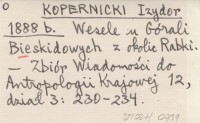 O KOPERNICKI Izydor
1888 b. Wesele u Górali
Bieskidowych z okolic Rabki.
— Zbiór Wiadomości do
Antropologii Krajowej 12,
dział 3: 230-234.